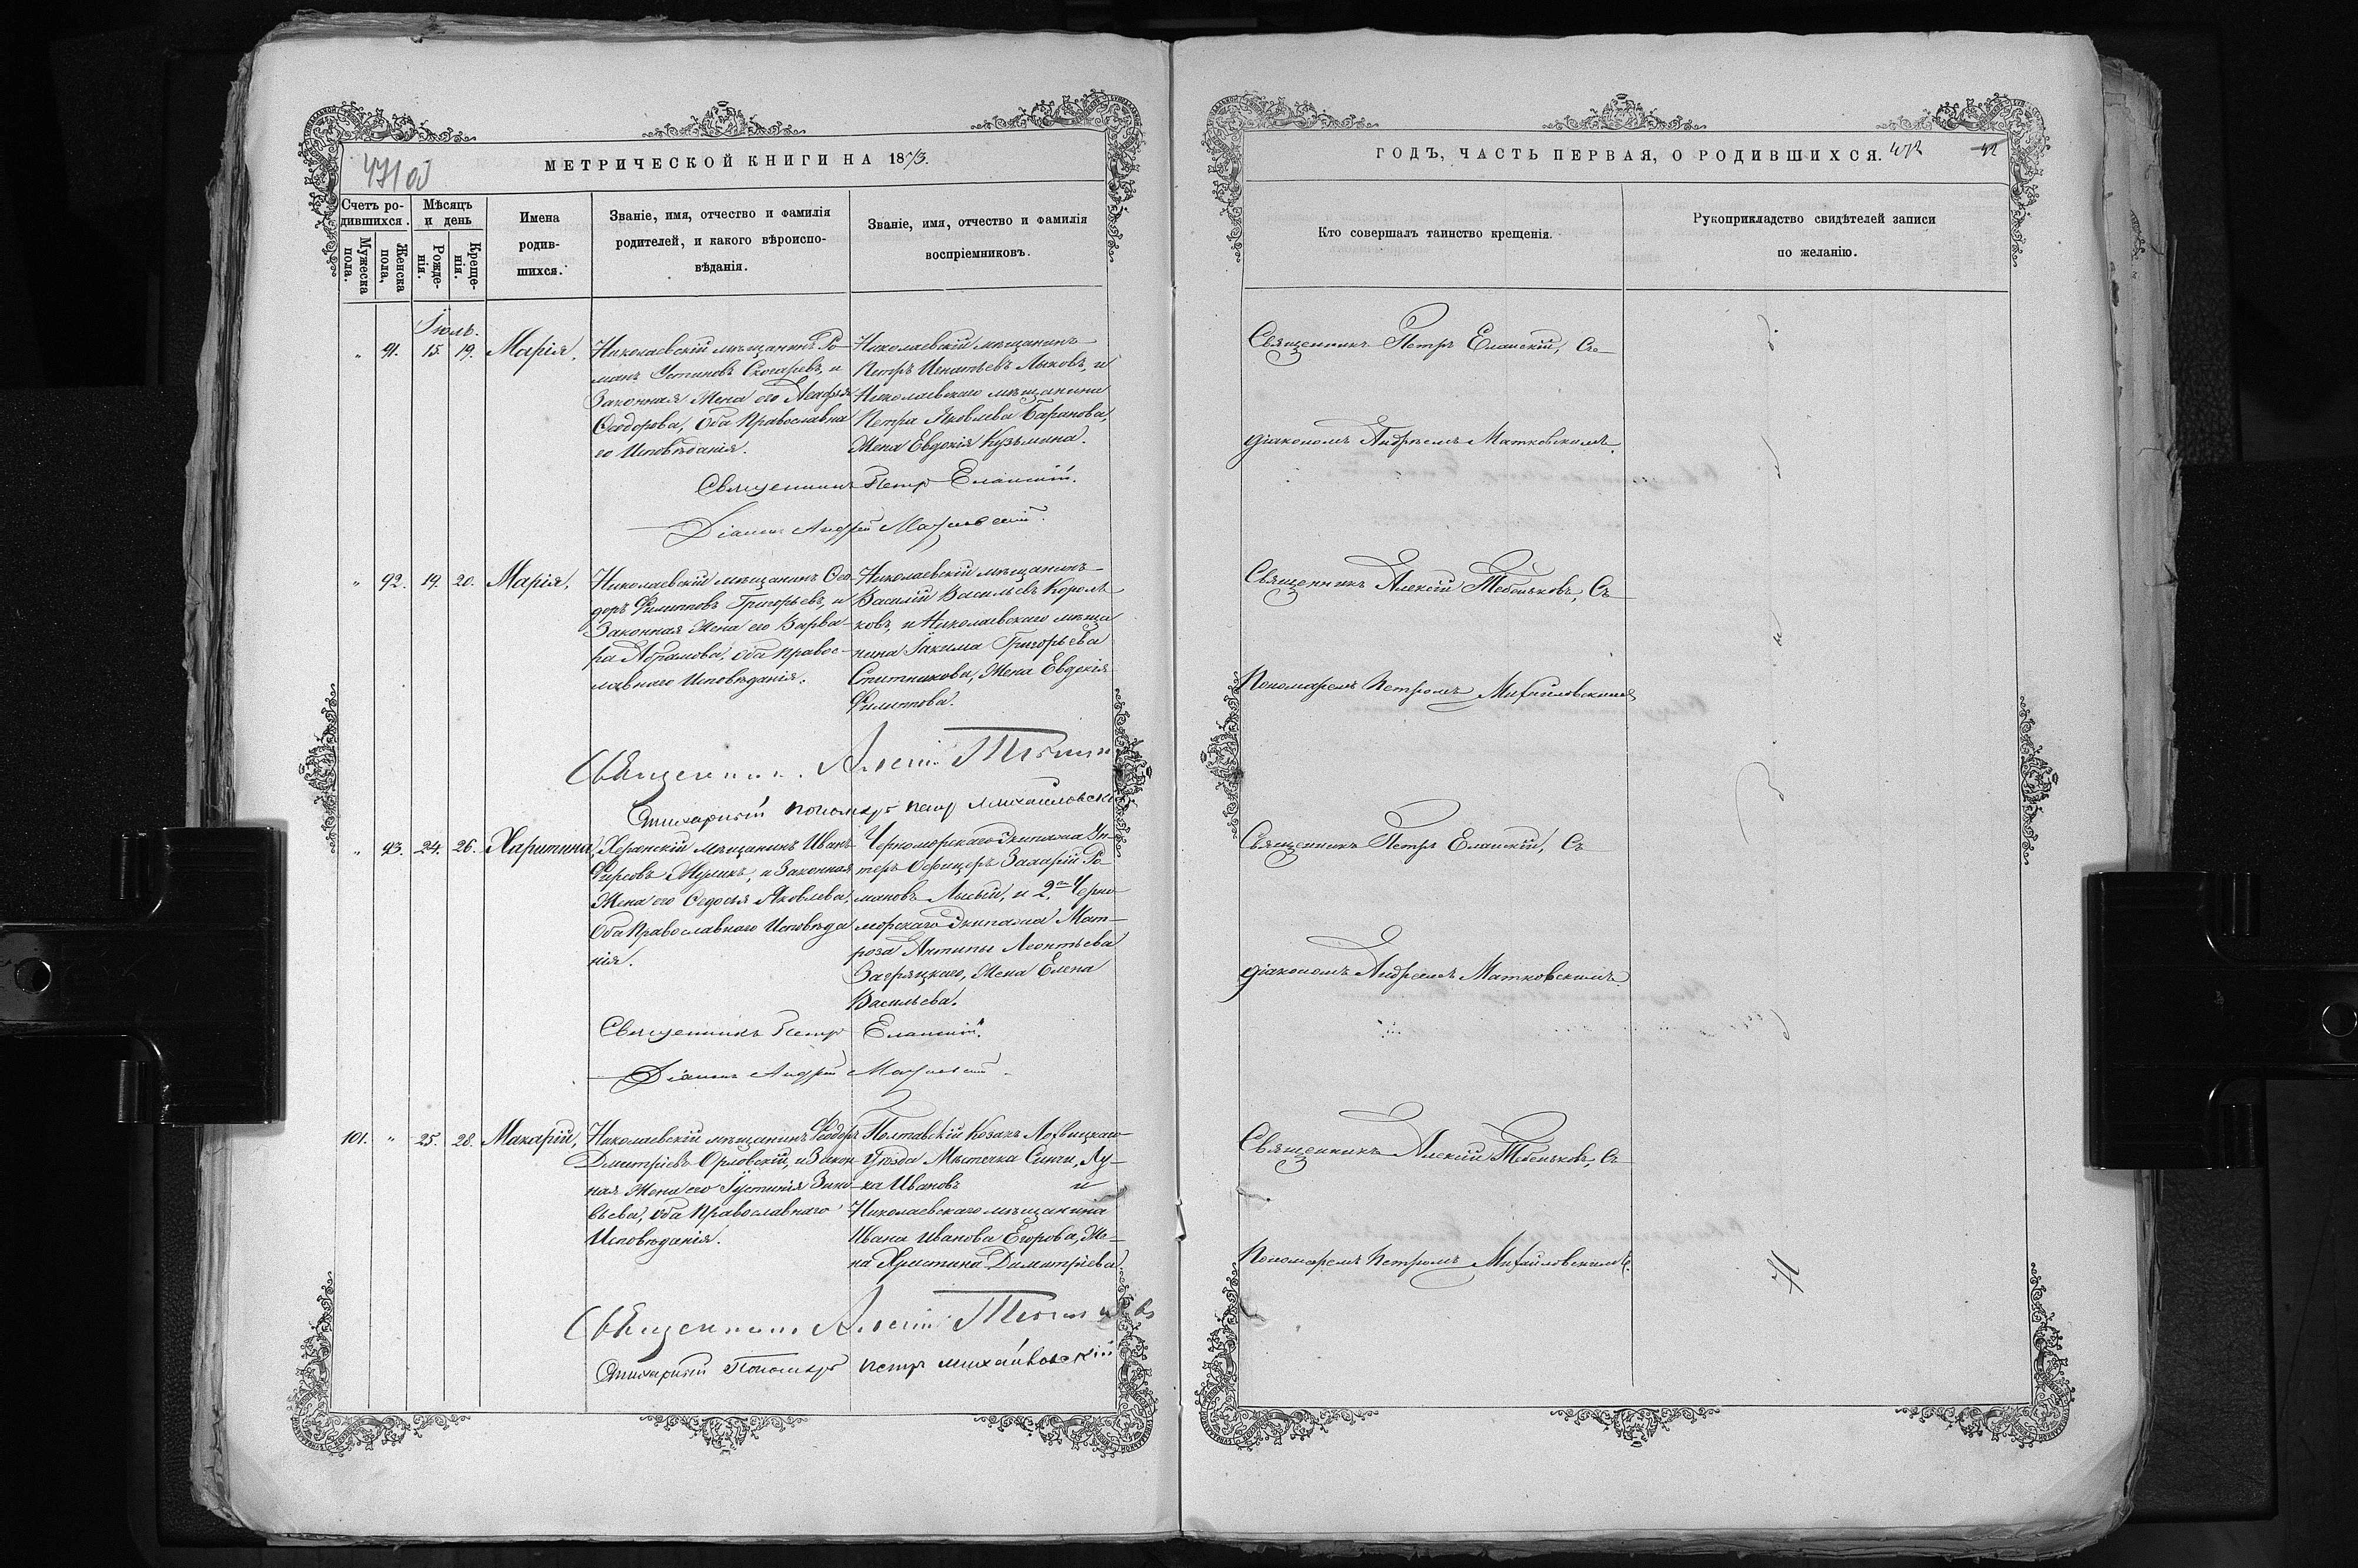 471 об
МЕТРИЧЕСКОЙ КНИГИ НА 1873.
Счетъ родившихся.
Мѣсяцъ и день
Мужеска пола.
Женска пола.
Рожденія.
Крещенія.
Имена
родив-
шихся.
Званіе, имя, отчество и фамилія
родителей, и какого вѣроиспо-
вѣданія.
Званіе, имя, отчество и фамилія
воспріемниковъ.
Іюль.
" 91. 15. 19. Марія,
Николаевскій мѣщанинъ Ро-
манъ Устиновъ и
Законная Жена его Агафья
Ѳеодорова, Оба Православна
го Исповѣданія.
Николаевскій мѣщанинъ
Петръ Игнатьевъ Лыковъ, и
Николаевскаго мѣщанина
Петра Яковлева Баранова,
Жена Евдокія Кузьмина.
Священникъ Петръ Еланскій.
Діаконъ Андрей Матковскій.
" 92. 19. 20. Марія,
Николаевскій мѣщанинъ Ѳео-
доръ Филипповъ Григорьевъ, и
Законная Жена его Варва-
ра Абрамова, оба правос-
лавнаго Исповѣданія.
Николаевскій мѣщанинъ
Василій Васильевъ Король
ковъ, и Николаевскаго мѣща
нина Іакима Григорьева
Ситникова, Жена Евдокія
Филиппова.
Священникъ Алексій Тебеньковъ
Стихарный пономарь Петр Михайловскій
" 93. 24. 26. Харитина,
Херсонскій мѣщанинъ Иванъ
Фирсовъ Мулинъ, и Законная
Жена его Ѳедосья Яковлева,
Оба Православнаго Исповѣда
нія.
Черноморскаго Экипажа Ун-
теръ Офицеръ Захарій Ро
мановъ Лысый, и 2го Черно
морскаго Экипажа Мат-
роза Антипы Леонтьева
Загряцкаго, Жена Елена
Васильева.
Священникъ Петръ Еланскій.
Діаконъ Андрей Матковскій.
101. " 25. 28. Макарій,
Николаевскій мѣщанинъ Ѳеодоръ
Дмитріевъ Орловскій, и Закон-
ная Жена его Іустинія Зино-
вьева, оба Православнаго
Исповѣданія.
Полтавскій Козакъ Лохвицкаго
Уѣзда Мѣстечка Сенчи, Лу-
ка Ивановъ и
Николаевскаго мѣщанина
Ивана Иванова Егорова, Же-
на Христина Димитріева.
Священникъ Алексій Тебеньковъ
Стихарный Пономарь Петръ Михайловскій
ГОДЪ, ЧАСТЬ ПЕРВАЯ, О РОДИВШИХСЯ. 472 42
Кто совершалъ таинство крещенія.
Рукоприкладство свидѣтелей записи
по желанію.
Священникъ Петръ Еланскій, Съ
діакономъ Андреемъ Матковскимъ.
Священникъ Алексій Тебеньковъ, Съ
Пономаремъ Петромъ Михайловскимъ
Священникъ Петръ Еланскій, Съ
діакономъ Андреемъ Матковскимъ.
Священникъ Алексій Тебеньковъ, Съ
Пономаремъ Петромъ Михайловскимъ.